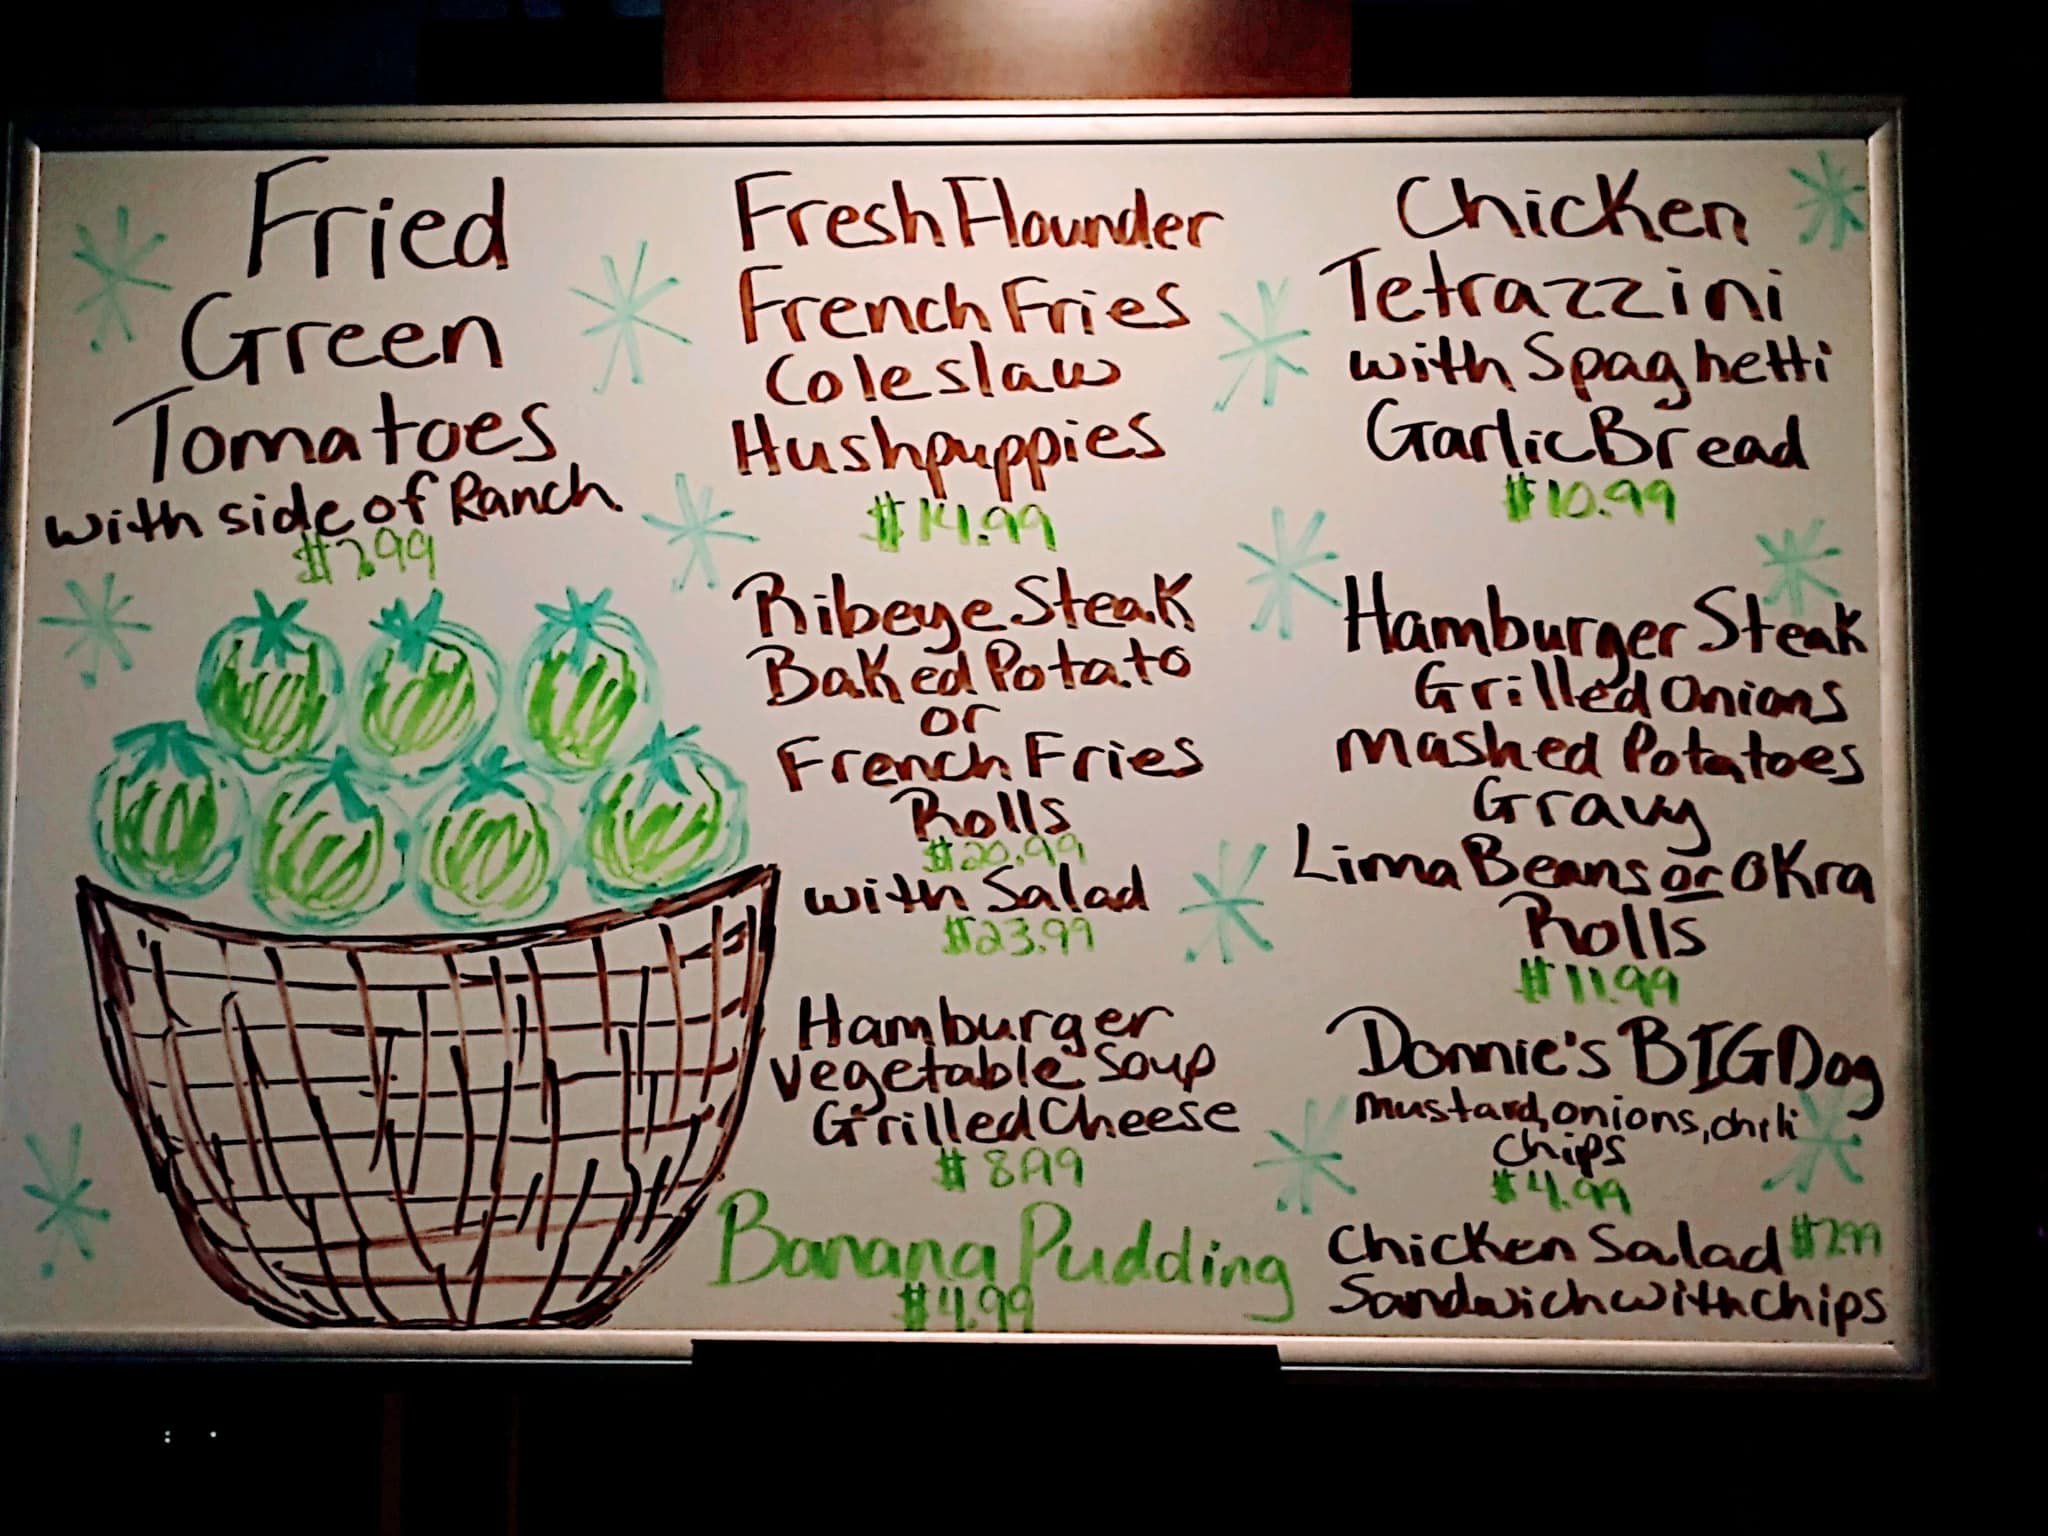 Fried
Green
Tomatoes
with side of Ranch
$7.99
Fresh Flounder
French Fries
Coleslaw
Hushpuppies
$14.99
Ribeye Steak
Baked Potato
or
French Fries
Rolls
$20.99
with Salad
$23.99
Hamburger
Vegetable Soup
Grilled Cheese
$8.99
Banana Pudding
$4.99
Chicken
Tetrazzini
with Spaghetti
Garlic Bread
$10.99
Hamburger Steak
Grilled Onions
Mashed Potatoes
Gravy
Lima Beans or Okra
Rolls
$11.99
Donnie's BIG Dog
mustard, onions, chili
chips
$4.99
Chicken Salad $7.99
Sandwich with chips